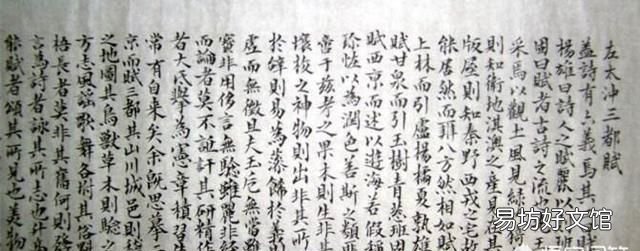 左太沖三都賦
蓋詩有六義焉其
楊雄曰詩人之賦麗以
固曰賦者古詩之流
采焉以觀土風見綠
則知衛地淇澳之產見在其
版屋則知秦野西戎之宅
能居然而辨八方然相如
上林而引盧橘夏熟
賦甘泉而引玉樹青葱班固
賦西京而述以遊海若假稱
珍恠以為潤色若斯之類
啻于兹考之果木則生非其
壤挍之神物則出非其所
於辭則易為藻飾於義
虛而無徵且夫玉卮無當雖
寶非用侈言無驗雖麗非經
而論者莫不詆訐其研精
者大氐舉為憲章積習生
常有自来矣余既思摹
京而賦三都其山川城邑則稽
之地圖其鳥獸草木則驗之
方志風謠歌舞各附其俗
梧長者莫非其舊何則發
言為詩者詠其所志也升
能賦者頌其所見也美物
易坊好文馆